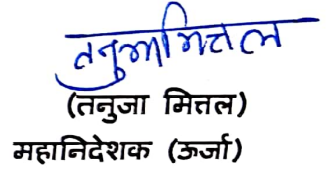 तनुजा मित्तल
(तनुजा मित्तल)
महानिदेशक (ऊर्जा)